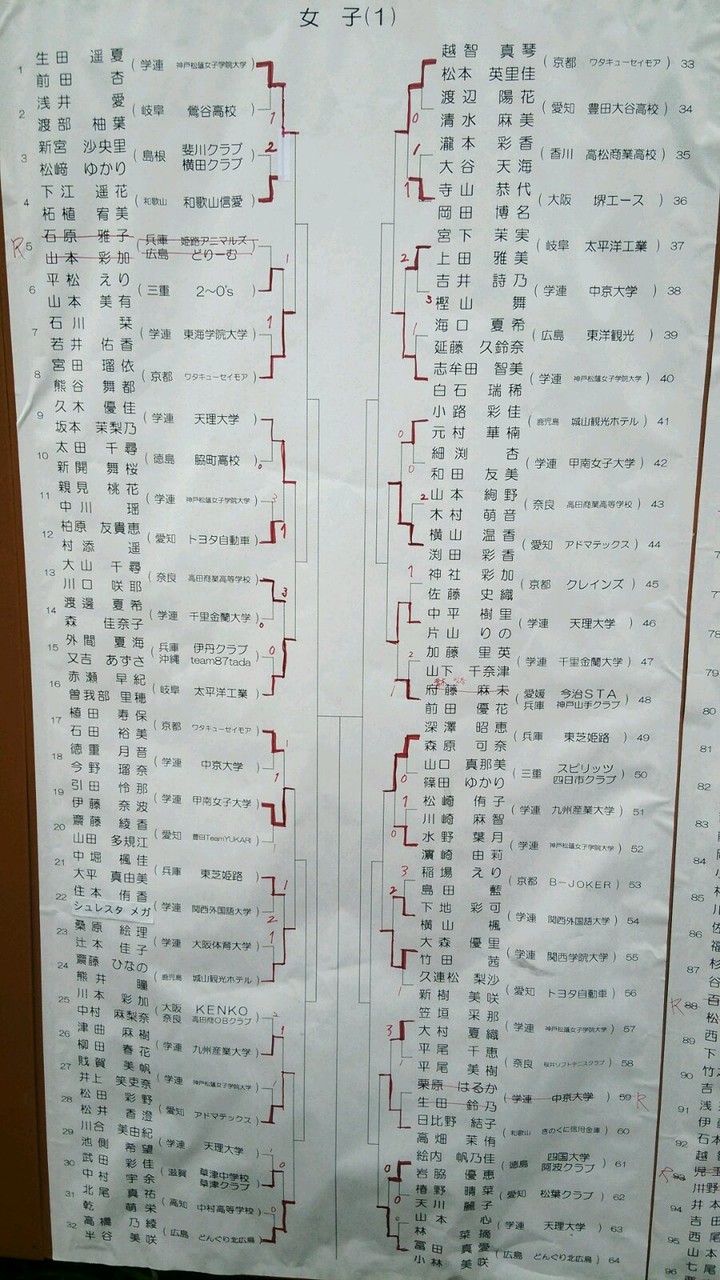 女 子(1)
1
生田 遥夏
前田 杏
(学連 神戸松蔭女子学院大学)
2
浅井 愛
渡部 柚葉
(岐阜 鶯谷高校)
3
新宮 沙央里
松崎 ゆかり
(島根 斐川クラブ
横田クラブ)
4
下江 遥花
柘植 宥美
(和歌山 和歌山信愛)
R5
石原 雅子
山本 彩加
(兵庫 姫路アニマルズ
広島 どりーむ)
6
平松 えり
山本 美有
(三重 2〜0's)
7
石川 栞
若井 佑香
(学連 東海学院大学)
8
宮田 瑠依
熊谷 舞都
(京都 ワタキューセイモア)
9
久木 優佳
坂本 茉梨乃
(学連 天理大学)
10
太田 千尋
新開 舞桜
(徳島 脇町高校)
11
親見 桃花
中川 瑶
(学連 神戸松蔭女子学院大学)
12
柏原 友貴恵
村添 遥
(愛知 トヨタ自動車)
13
大山 千尋
川口 咲耶
(奈良 高田商業高等学校)
14
渡邊 夏希
森 佳奈子
(学連 千里金蘭大学)
15
外間 夏海
又吉 あずさ
(兵庫 伊丹クラブ
沖縄 team87tada)
16
赤瀬 早紀
曽我部 里穂
(岐阜 太平洋工業)
17
植田 寿保
石田 裕美
(京都 ワタキューセイモア)
18
徳重 月音
今野 瑠奈
(学連 中京大学)
19
引田 怜那
伊藤 奈波
(学連 甲南女子大学)
20
齋藤 綾香
山田 多規江
(愛知 豊田TeamYUKARI)
21
中堀 楓佳
大平 真由美
(兵庫 東芝姫路)
22
住本 侑香
シュレスタ メガ
(学連 関西外国語大学)
23
桑原 絵理
辻本 佳子
(学連 大阪体育大学)
24
齋藤 ひなの
熊井 瞳
(鹿児島 城山観光ホテル)
25
川本 彩加
中村 麻梨奈
(大阪 KENKO
奈良 高田商OBクラブ)
26
津曲 麻樹
柳田 春花
(学連 九州産業大学)
27
賤賀 美帆
井上 笑吏奈
(学連 神戸松蔭女子学院大学)
28
松田 彩野
松井 香澄
(愛知 アドマテックス)
29
川合 美由紀
池側 希望
(学連 天理大学)
30
武田 彩佳
中村 宇余
(滋賀 草津中学校
草津クラブ)
31
北尾 真祐
乾 萌栄
(高知 中村高等学校)
32
高橋 乃綾
半谷 美咲
(広島 どんぐり北広島)
越智 真琴
松本 英里佳
(京都 ワタキューセイモア) 33
渡辺 陽花
清水 麻美
(愛知 豊田大谷高校) 34
瀧本 彩香
大谷 天海
(香川 高松商業高校) 35
寺山 恭代
岡田 博名
(大阪 堺エース) 36
宮下 茉実
上田 雅美
(岐阜 太平洋工業) 37
吉井 詩乃
樫山 舞
(学連 中京大学) 38
海口 夏希
延藤 久鈴奈
(広島 東洋観光) 39
志牟田 智美
白石 瑞稀
(学連 神戸松蔭女子学院大学) 40
小路 彩佳
元村 華楠
(鹿児島 城山観光ホテル) 41
細渕 杏
和田 友美
(学連 甲南女子大学) 42
山本 絢野
木村 萌音
(奈良 高田商業高等学校) 43
横山 温香
渕田 彩香
(愛知 アドマテックス) 44
神社 彩加
佐藤 史織
(京都 クレインズ) 45
中平 樹里
片山 りの
(学連 天理大学) 46
加藤 里英
山下 千奈津
(学連 千里金蘭大学) 47
府藤 麻未
前田 優花
(愛媛 今治STA
兵庫 神戸山手クラブ) 48
深澤 昭恵
森原 可奈
(兵庫 東芝姫路) 49
山口 真那美
篠田 ゆかり
(三重 スピリッツ
四日市クラブ) 50
松崎 侑子
川崎 麻智
(学連 九州産業大学) 51
水野 葉月
濵崎 由莉
(学連 神戸松蔭女子学院大学) 52
稲場 えり
島田 藍
(京都 B-JOKER) 53
下地 彩可
横山 楓
(学連 関西外国語大学) 54
大森 優里
竹田 茜
(学連 関西学院大学) 55
久連松 梨沙
新樹 美咲
(愛知 トヨタ自動車) 56
笠垣 采那
大村 夏織
(学連 神戸松蔭女子学院大学) 57
平尾 千恵
平尾 美樹
(奈良 桜井ソフトテニスクラブ) 58
栗原 はるか
生田 鈴乃
(学連 中京大学) 59 R
日比野 結子
高畑 茉侑
(和歌山 きのくに信用金庫) 60
絵内 帆乃佳
岩脇 優恵
(徳島 四国大学
阿波クラブ) 61
椿野 晴菜
天川 麗子
(愛知 松葉クラブ) 62
山本 心
林 菜摘
(学連 天理大学) 63
冨田 真愛
小林 美咲
(広島 どんぐり北広島) 64